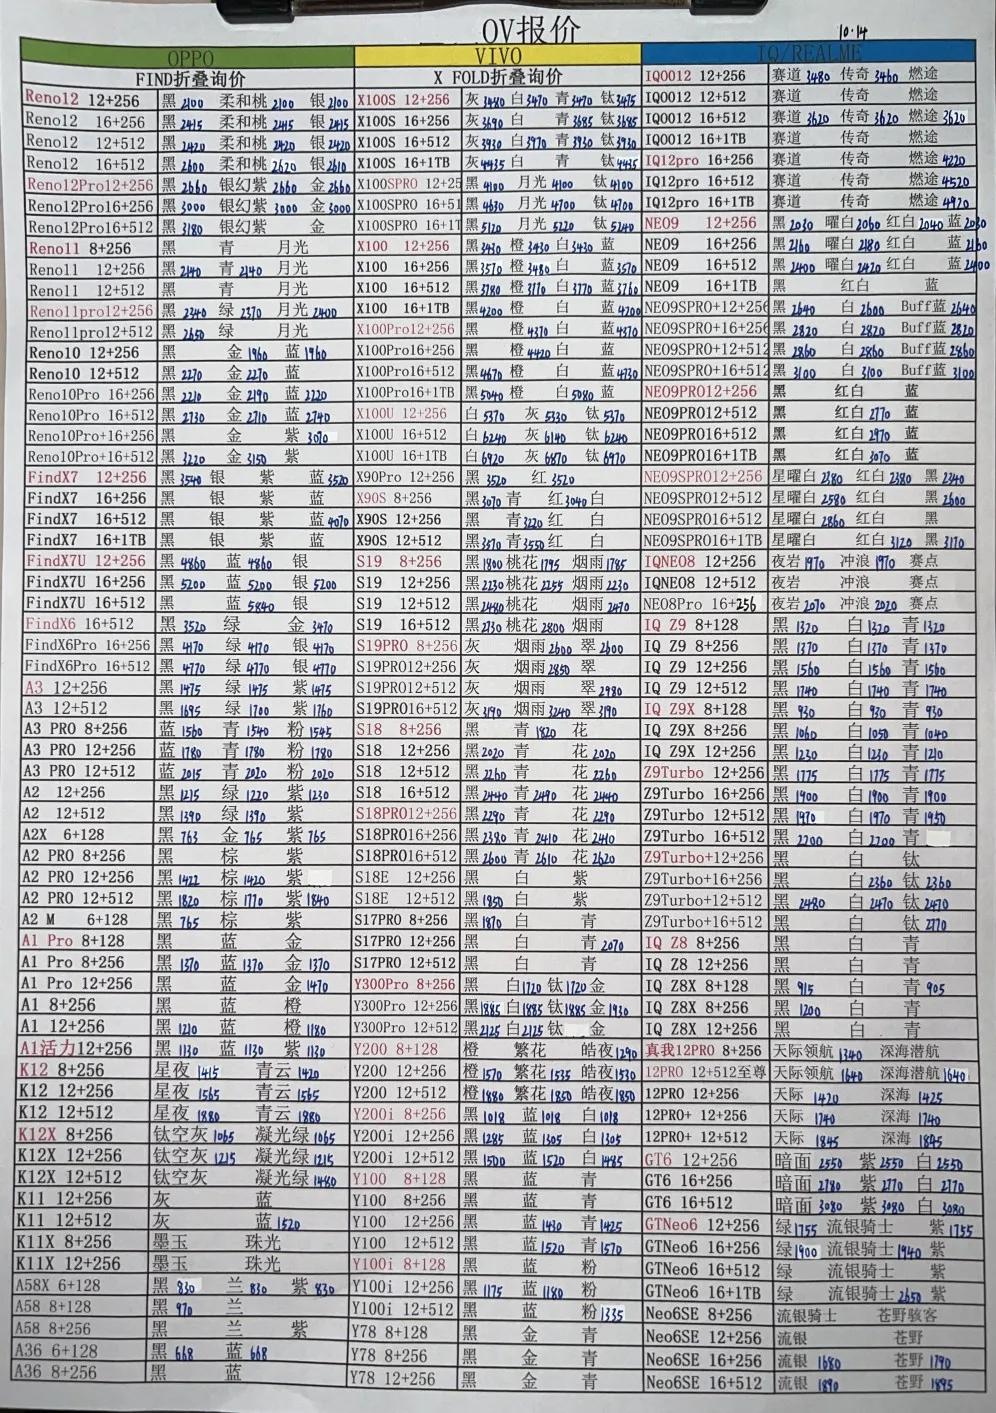 OV报价 10.14
OPPO VIVO IQ/REALME
FIND折叠询价 X FOLD折叠询价 IQ0012 12+256 赛道3480 传奇3460 燃途
Reno12 12+256 黑2100 柔和桃2100 银2100 X100S 12+256 灰3480 白3470 青3470 钛3475 IQ0012 12+512 赛道 传奇 燃途
Reno12 16+256 黑2415 柔和桃2415 银2415 X100S 16+256 灰3690 白 青3685 钛3685 IQ0012 16+512 赛道3620 传奇3620 燃途3620
Reno12 12+512 黑2420 柔和桃2420 银2420 X100S 16+512 灰3930 白3970 青3930 钛3930 IQ0012 16+1TB 赛道 传奇 燃途
Reno12 16+512 黑2600 柔和桃2620 银2610 X100S 16+1TB 灰4435 白 青 钛4435 IQ12pro 16+256 赛道 传奇 燃途4220
Reno12Pro12+256 黑2660 银幻紫2660 金2660 X100SPRO 12+25 黑4100 月光4100 钛4100 IQ12pro 16+512 赛道 传奇 燃途4520
Reno12Pro16+256 黑3000 银幻紫3000 金3000 X100SPRO 16+51 黑4630 月光4700 钛4700 IQ12pro 16+1TB 赛道 传奇 燃途4920
Reno12Pro16+512 黑3180 银幻紫 金 X100SPRO 16+1T 黑5120 月光5220 钛5240 NEO9 12+256 黑2030 曜白2060 红白2040 蓝2030
Reno11 8+256 黑 青 月光 X100 12+256 黑3430 橙3430 白3430 蓝 NEO9 16+256 黑2160 曜白2180 红白 蓝2160
Reno11 12+256 黑2140 青2140 月光 X100 16+256 黑3570 橙3480 白 蓝3570 NEO9 16+512 黑2400 曜白2420 红白 蓝2400
Reno11 12+512 黑 青 月光 X100 16+512 黑3780 橙3770 白3770 蓝3760 NEO9 16+1TB 黑 红白 蓝
Reno11pro12+256 黑2340 绿2370 月光2400 X100 16+1TB 黑4200 橙 白 蓝4200 NEO9SPRO+12+256 黑2640 白2600 Buff蓝2640
Reno11pro12+512 黑2650 绿 月光 X100Pro12+256 黑 橙4370 白 蓝4370 NEO9SPRO+16+256 黑2820 白2820 Buff蓝2820
Reno10 12+256 黑 金1960 蓝1960 X100Pro16+256 黑 橙4420 白 蓝 NEO9SPRO+12+512 黑2860 白2860 Buff蓝2860
Reno10 12+512 黑2270 金2270 蓝 X100Pro16+512 黑4670 橙 白 蓝4730 NEO9SPRO+16+512 黑3100 白3100 Buff蓝3100
Reno10Pro 16+256 黑2210 金2190 蓝2220 X100Pro16+1TB 黑5040 橙 白5080 蓝 NEO9PRO12+256 黑 红白 蓝
Reno10Pro 16+512 黑2730 金2710 蓝2740 X100U 12+256 白5370 灰5330 钛5370 NEO9PRO12+512 黑 红白2770 蓝
Reno10Pro+16+256 黑 金 紫3070 X100U 16+512 白6240 灰6140 钛6240 NEO9PRO16+512 黑 红白2970 蓝
Reno10Pro+16+512 黑3220 金3150 紫 X100U 16+1TB 白6920 灰6870 钛6970 NEO9PRO16+1TB 黑 红白3070 蓝
FindX7 12+256 黑3540 银 紫 蓝3520 X90Pro 12+256 黑3520 红3520 NEO9SPRO12+256 星曜白2380 红白2380 黑2340
FindX7 16+256 黑 银 紫 蓝 X90S 8+256 黑3070 青 红3040 白 NEO9SPRO12+512 星曜白2580 红白 黑2600
FindX7 16+512 黑 银 紫 蓝4070 X90S 12+256 黑 青3220 红 白 NEO9SPRO16+512 星曜白2860 红白 黑
FindX7 16+1TB 黑 银 紫 蓝 X90S 12+512 黑3570 青3550 红 白 NEO9SPRO16+1TB 星曜白 红白3120 黑3170
FindX7U 12+256 黑4860 蓝4860 银 S19 8+256 黑1800 桃花1795 烟雨1785 IQNEO8 12+256 夜岩1970 冲浪1970 赛点
FindX7U 16+256 黑5200 蓝5200 银5200 S19 12+256 黑2230 桃花2255 烟雨2230 IQNEO8 12+512 夜岩 冲浪 赛点
FindX7U 16+512 黑 蓝5840 银 S19 12+512 黑2480 桃花 烟雨2470 NEO8Pro 16+256 夜岩2070 冲浪2020 赛点
FindX6 16+512 黑3520 绿 金3470 S19 16+512 黑2730 桃花2800 烟雨 IQ Z9 8+128 黑1320 白1320 青1320
FindX6Pro 16+256 黑4170 绿4170 银4170 S19PRO 8+256 灰 烟雨2600 翠2600 IQ Z9 8+256 黑1370 白1370 青1370
FindX6Pro 16+512 黑4770 绿4770 银4770 S19PRO12+256 灰 烟雨2850 翠 IQ Z9 12+256 黑1560 白1560 青1560
A3 12+256 黑1475 绿1475 紫1475 S19PRO12+512 灰 烟雨 翠2980 IQ Z9 12+512 黑1740 白1740 青1740
A3 12+512 黑1695 绿1700 紫1760 S19PRO16+512 灰3190 烟雨3240 翠3190 IQ Z9X 8+128 黑930 白930 青930
A3 PRO 8+256 蓝1560 青1540 粉1545 S18 8+256 黑 青1820 花 IQ Z9X 8+256 黑1060 白1050 青1040
A3 PRO 12+256 蓝1780 青1780 粉1780 S18 12+256 黑2020 青 花2020 IQ Z9X 12+256 黑1230 白1230 青1210
A3 PRO 12+512 蓝2015 青2020 粉2020 S18 12+512 黑2260 青 花2260 Z9Turbo 12+256 黑1775 白1775 青1775
A2 12+256 黑1215 绿1220 紫1230 S18 16+512 黑2440 青2490 花2440 Z9Turbo 16+256 黑1900 白1900 青1900
A2 12+512 黑1390 绿1390 紫 S18PRO12+256 黑2290 青 花2290 Z9Turbo 12+512 黑1970 白1970 青1950
A2X 6+128 黑763 金765 紫765 S18PRO16+256 黑2380 青2410 花2440 Z9Turbo 16+512 黑2200 白2200 青
A2 PRO 8+256 黑 棕 紫 S18PRO16+512 黑2600 青2610 花2620 Z9Turbo+12+256 黑 白 钛
A2 PRO 12+256 黑1422 棕1420 紫 S18E 12+256 黑 白 紫 Z9Turbo+16+256 黑 白2360 钛2360
A2 PRO 12+512 黑1820 棕1770 紫1840 S18E 12+512 黑1850 白 紫 Z9Turbo+12+512 黑2480 白2470 钛2470
A2 M 6+128 黑765 棕 紫 S17PRO 8+256 黑1870 白 青 Z9Turbo+16+512 黑 白 钛2770
A1 Pro 8+128 黑 蓝 金 S17PRO 12+256 黑 白 青2070 IQ Z8 8+256 黑 白 青
A1 Pro 8+256 黑1370 蓝1370 金1370 S17PRO 12+512 黑 白 青 IQ Z8 12+256 黑 白 青
A1 Pro 12+256 黑 蓝 金1470 Y300Pro 8+256 黑 白1720 钛1720 金 IQ Z8X 8+128 黑915 白 青905
A1 8+256 黑 蓝 橙 Y300Pro 12+256 黑1885 白1885 钛1885 金1930 IQ Z8X 8+256 黑1200 白 青
A1 12+256 黑1210 蓝 橙1180 Y300Pro 12+512 黑2125 白2125 钛 金 IQ Z8X 12+256 黑 白 青
A1活力12+256 黑1130 蓝1130 紫1130 Y200 8+128 橙 繁花 皓夜1290 真我12PRO 8+256 天际领航1340 深海潜航
K12 8+256 星夜1415 青云1420 Y200 12+256 橙1570 繁花1535 皓夜1530 12PRO 12+512至尊 天际领航1640 深海潜航1640
K12 12+256 星夜1565 青云1565 Y200 12+512 橙1880 繁花1850 皓夜1850 12PRO 12+256 天际1420 深海1425
K12 12+512 星夜1880 青云1880 Y200i 8+256 黑1018 蓝1018 白1018 12PRO+ 12+256 天际1740 深海1740
K12X 8+256 钛空灰1065 凝光绿1065 Y200i 12+256 黑1285 蓝1305 白1305 12PRO+ 12+512 天际1845 深海1845
K12X 12+256 钛空灰1215 凝光绿1215 Y200i 12+512 黑1500 蓝1520 白1485 GT6 12+256 暗面2550 紫2550 白2550
K12X 12+512 钛空灰 凝光绿1480 Y100 8+128 黑 蓝 青 GT6 16+256 暗面2780 紫2770 白2770
K11 12+256 灰 蓝 Y100 8+256 黑 蓝 青 GT6 16+512 暗面3080 紫3080 白3080
K11 12+512 灰 蓝1520 Y100 12+256 黑 蓝1430 青1425 GTNeo6 12+256 绿1755 流银骑士 紫1755
K11X 8+256 墨玉 珠光 Y100 12+512 黑 蓝1520 青1570 GTNeo6 16+256 绿1900 流银骑士1940 紫
K11X 12+256 墨玉 珠光 Y100i 8+128 黑 蓝 粉 GTNeo6 16+512 绿 流银骑士 紫
A58X 6+128 黑830 兰830 紫830 Y100i 12+256 黑1175 蓝1180 粉 GTNeo6 16+1TB 绿 流银骑士2650 紫
A58 8+128 黑970 兰 Y100i 12+512 黑 蓝 粉1335 Neo6SE 8+256 流银骑士 苍野骇客
A58 8+256 黑 兰 紫 Y78 8+128 黑 金 青 Neo6SE 12+256 流银 苍野
A36 6+128 黑668 蓝668 Y78 8+256 黑 金 青 Neo6SE 16+256 流银1680 苍野1790
A36 8+256 黑 蓝 Y78 12+256 黑 金 青 Neo6SE 16+512 流银1890 苍野1895